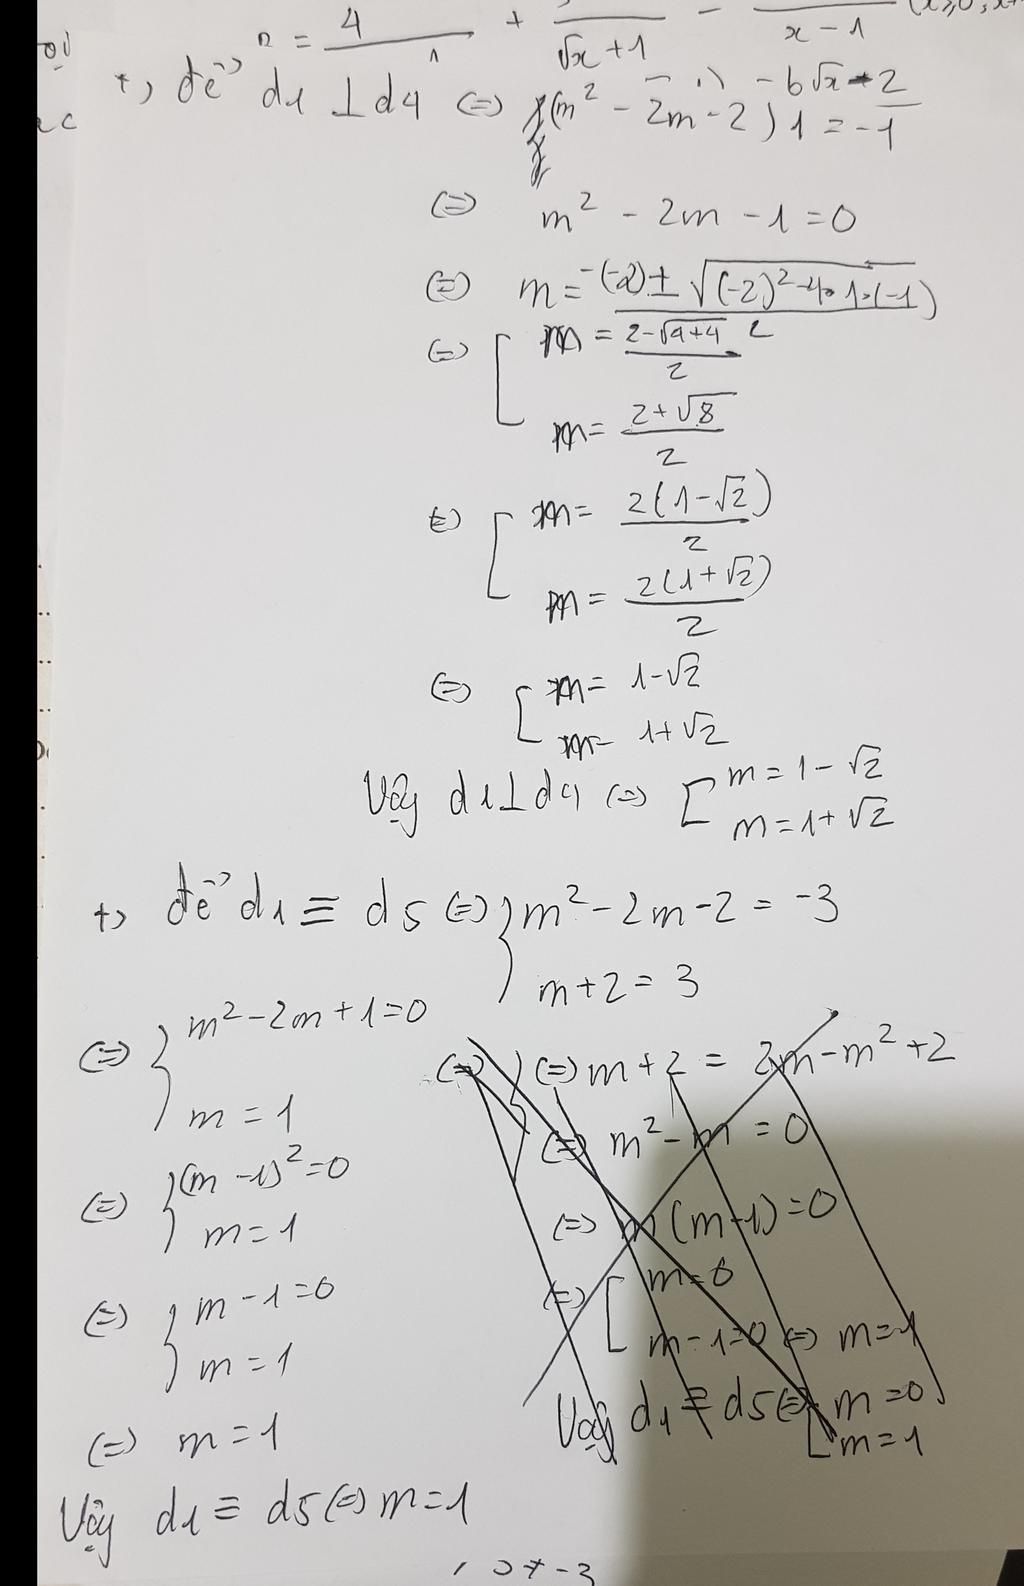 = 4 + √x + 1 - x - 1
- 6√x - 2
+, để d1 ⊥ d4 (=) (m² - 2m - 2) 1 = -1
(=) m² - 2m - 1 = 0
(=) m = -(-2) ± √(-2)² - 4.1.(-1) / 2
(=) [ m = 2 - √4+4 / 2
m = 2 + √8 / 2
(=) [ m = 2(1 - √2) / 2
m = 2(1 + √2) / 2
(=) [ m = 1 - √2
m = 1 + √2
Vậy d1 ⊥ d4 (=) [ m = 1 - √2
m = 1 + √2
+, để d1 ≡ d5 (=) } m² - 2m - 2 = -3
m + 2 = 3
(=) } m² - 2m + 1 = 0
m = 1
(=) } (m - 1)² = 0
m = 1
(=) } m - 1 = 0
m = 1
(=) m = 1
Vậy d1 ≡ d5 (=) m = 1
(=) } (=) m + 2 = 2m - m² + 2
(=) m² - m = 0
(=) m (m - 1) = 0
(=) [ m = 0
m - 1 = 0 (=) m = 1
Vậy d1 ≡ d5 (=) [ m = 0
m = 1